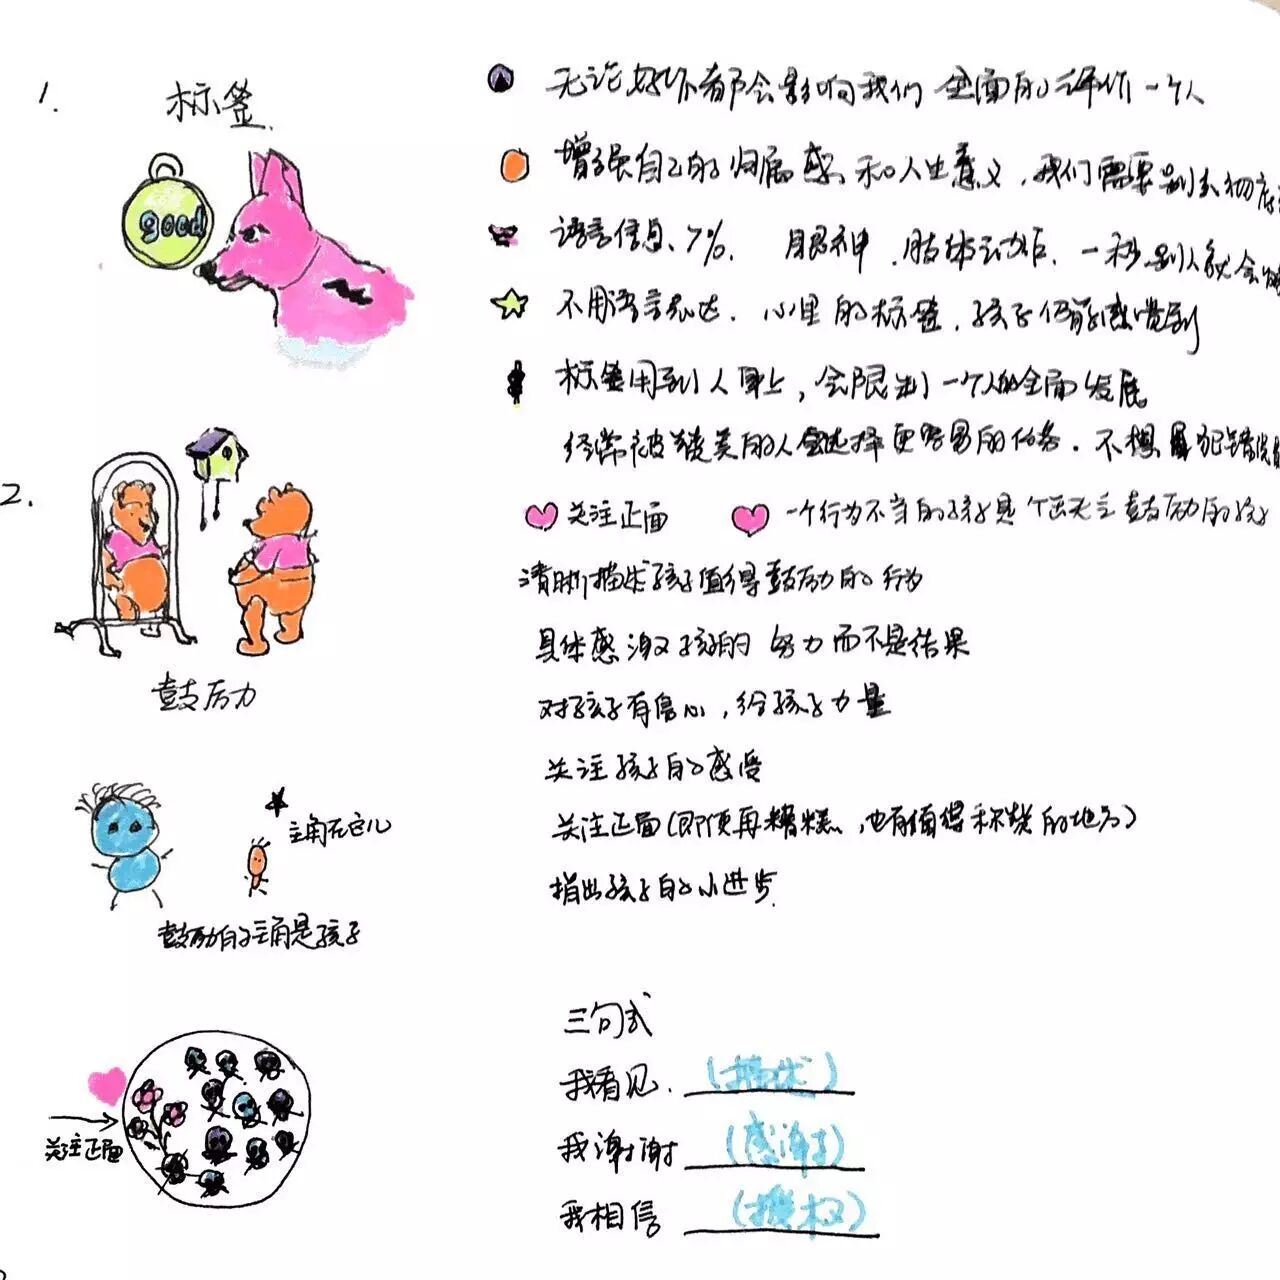 1.
标签
good
无论好坏都会影响我们全面的评价一个人
增强自己的归属感和人生意义，我们需要别人
语言信息、7%. 眼神. 肢体动作. 一秒别人就会
不用语言表达. 心里的标签. 孩子仍能感觉到
标签用到人身上，会限制一个人的全面发展
经常被赞美的人会选择更容易的任务. 不想犯错误
2.
鼓励
关注正面
一个行为不当的孩子是个丧失鼓励的孩子
清晰描述孩子值得鼓励的行为
具体感激孩子的努力而不是结果
对孩子有信心，给孩子力量
关注孩子的感受
关注正面(即便再糟糕，也有值得称赞的地方)
指出孩子的小进步
主角在这儿
鼓励的主角是孩子
关注正面
三句式
我看见.(描述)
我谢谢(感谢)
我相信(授权)